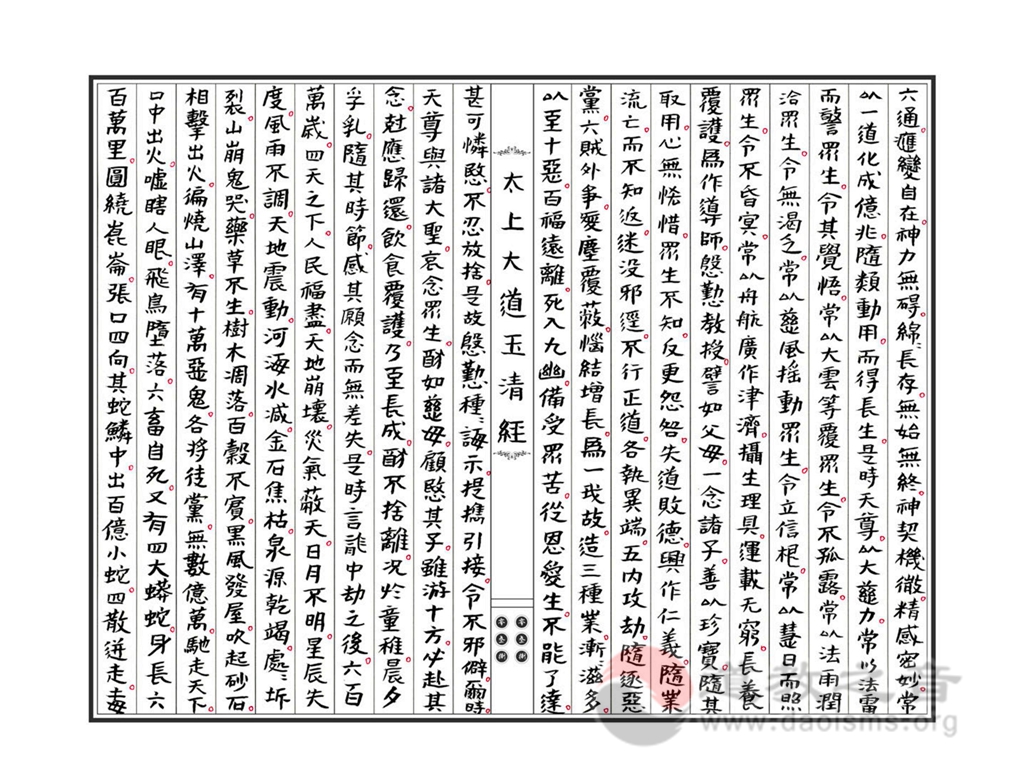 六通匯變自在神力無碍綿綿長存無始無終神契機微精感密妙常
以一道化成億兆隨類動用而得長生是時天尊以大慈力常以法雷
而警眾生令其覺悟常以大雲等覆眾生令不孤露常以法雨潤
洽眾生令無渴乏常以慈風摇動眾生令立信根常以慧日而照
眾生令不昏冥常以舟航廣作津濟攝生理具運載无窮長養
覆護爲作導師慇懃教授譬如父母一念諸子善以珍寶隨其
取用心無恡惜眾生不知反更怨咎失道敗德興作仁義隨業
流亡而不知返迷没邪逕不行正道各執異端五内攻劫隨逐惡
黨六賊外爭愛塵覆蔽惱結增長爲一我故造三種業漸漸滋多
以至十惡百福遠離死入九幽備受眾苦從恩愛生不能了達
太上大道玉清經
甚可憐愍不忍放捨是故慇懃種種誨示提攜引接令不邪僻爾時
天尊與諸大聖哀念眾生酬如慈母顧愍其子雖游十方必赴其
念尅應歸還飲食覆護乃至長成酬不捨離况於童稚晨夕
孚乳隨其時節感其願念而無差失是時言訖中劫之後六百
萬歲四天之下人民福盡天地崩壞災氣蔽天日月不明星辰失
度風雨不調天地震動河海水減金石焦枯泉源乾竭處處坼
裂山崩鬼哭藥草不生樹木凋落百穀不實黑風發屋吹起砂石
相擊出火徧燒山澤有十萬惡鬼各将徒黨無數億萬馳走天下
口中出火嘘瞎人眼飛鳥墮落六畜自死又有四大蟒蛇身長六
百萬里圍繞崑崙張口四向其蛇鱗中出百億小蛇四散迸走毒
道教之音
www.daoisms.org